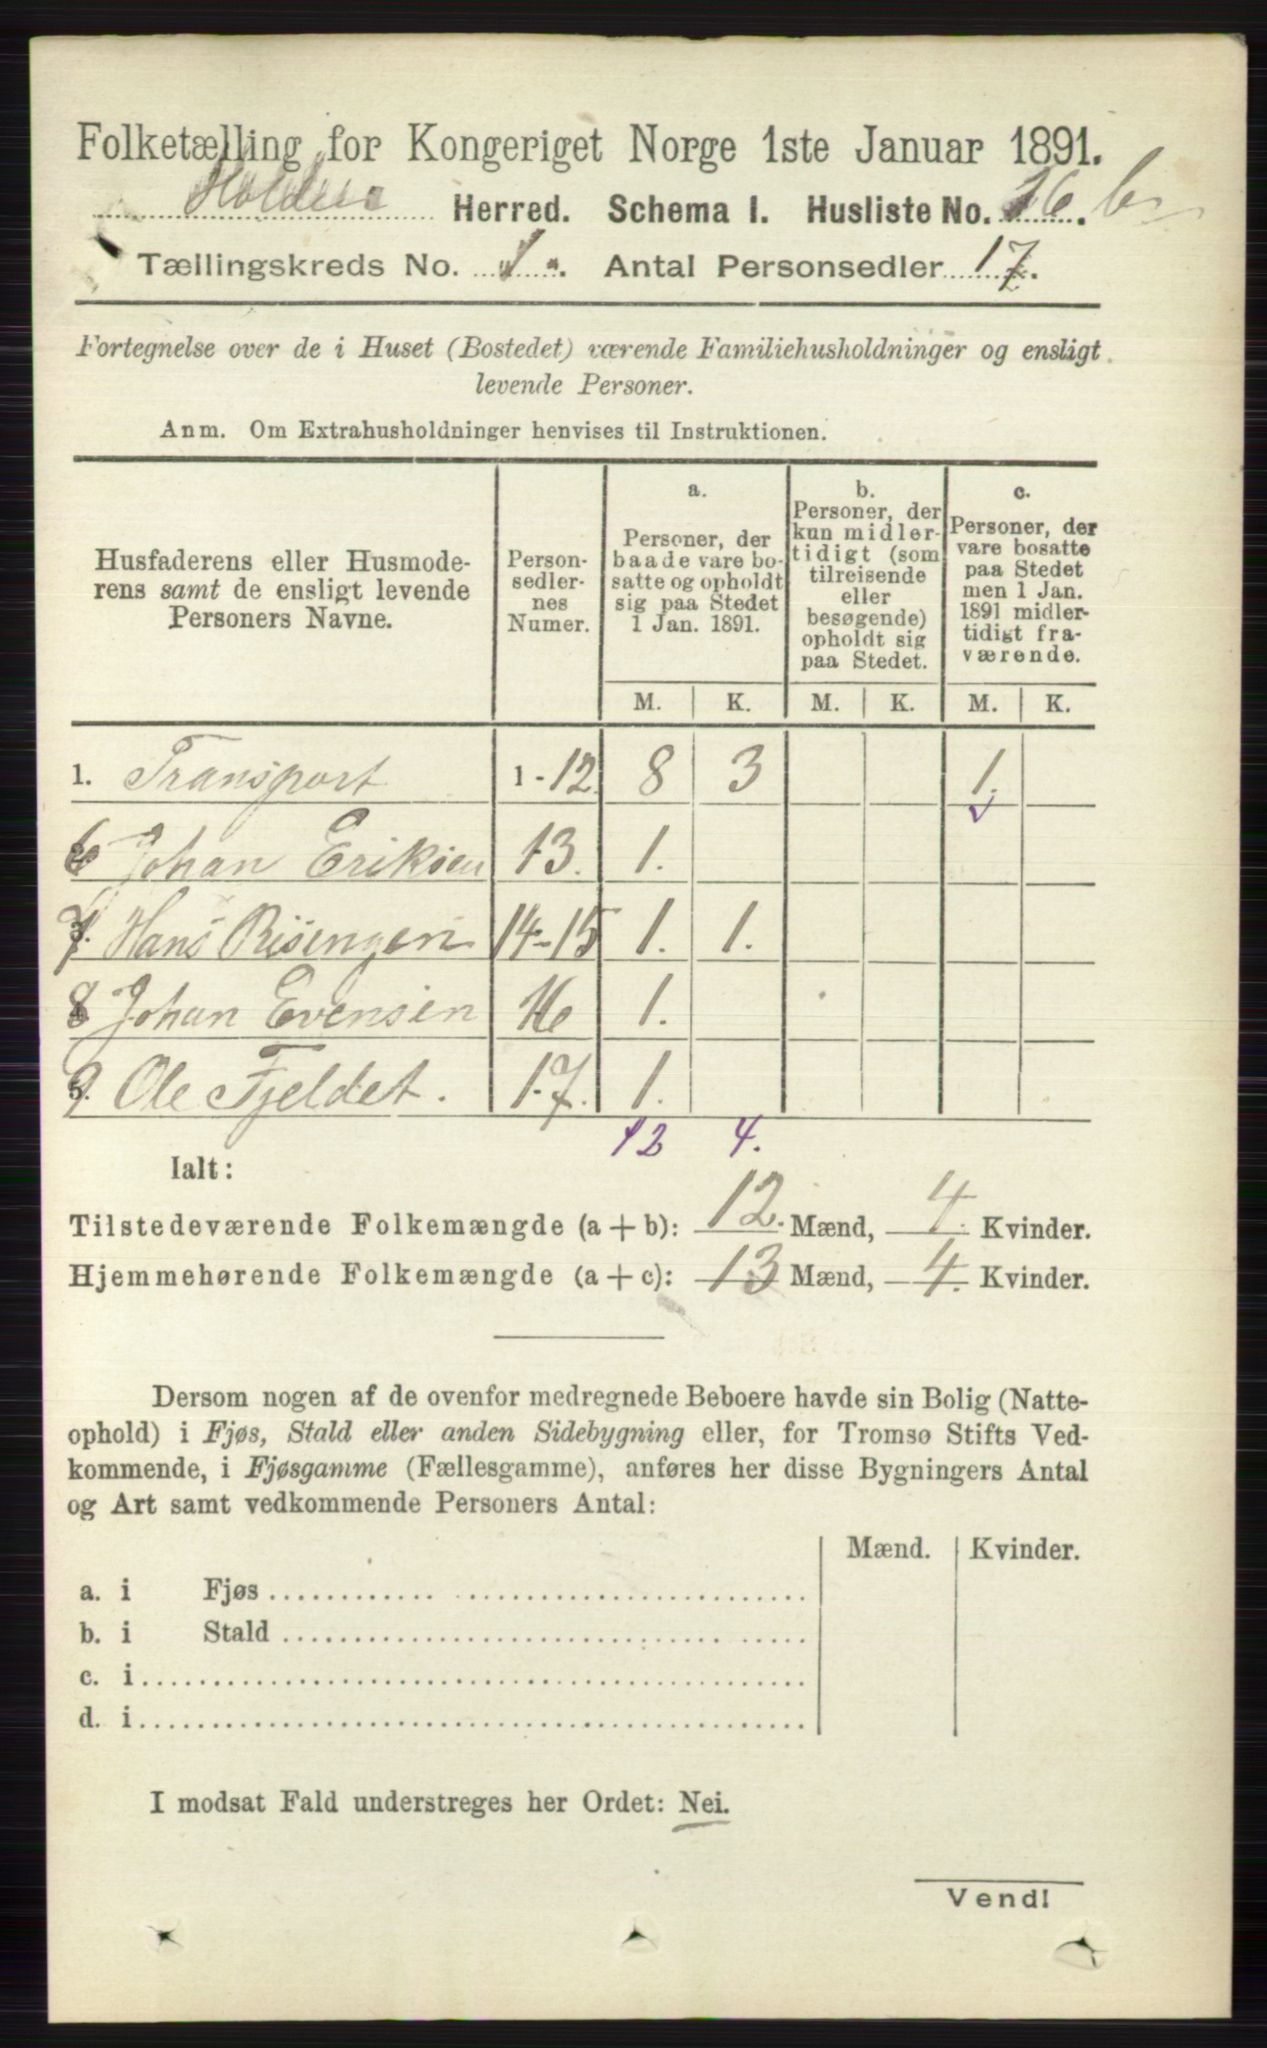 Folketælling for Kongeriget Norge 1ste Januar 1891.
Holden Herred. Schema I. Husliste No. 16 b
Tællingskreds No. 1. Antal Personsedler 17.
Fortegnelse over de i Huset (Bostedet) værende Familiehusholdninger og ensligt
levende Personer.
Anm. Om Extrahusholdninger henvises til Instruktionen.
Husfaderens eller Husmode-
rens samt de ensligt levende
Personers Navne.
Person-
sedler-
nes
Numer.
a.
Personer, der
baade vare bo-
satte og opholdt
sig paa Stedet
1 Jan. 1891.
b.
Personer, der
kun midler-
tidigt (som
tilreisende
eller
besøgende)
opholdt sig
paa Stedet.
c.
Personer, der
vare bosatte
paa Stedet
men 1 Jan.
1891 midler-
tidigt fra-
værende.
M. K. M. K. M. K.
1. Transport 1-12 8 3 1.
6 Johan Eriksen 13. 1.
7. Hans Risengen 14-15 1. 1.
8 Johan Evensen 16 1.
9 Ole Fjeldet. 17. 1.
12 4.
Ialt:
Tilstedeværende Folkemængde (a + b): 12. Mænd, 4. Kvinder.
Hjemmehørende Folkemængde (a + c): 13 Mænd, 4. Kvinder.
Dersom nogen af de ovenfor medregnede Beboere havde sin Bolig (Natte-
ophold) i Fjøs, Stald eller anden Sidebygning eller, for Tromsø Stifts Ved-
kommende, i Fjøsgamme (Fællesgamme), anføres her disse Bygningers Antal
og Art samt vedkommende Personers Antal:
Mænd. Kvinder.
a. i Fjøs
b. i Stald
c. i
d. i
I modsat Fald understreges her Ordet: Nei.
Vend!